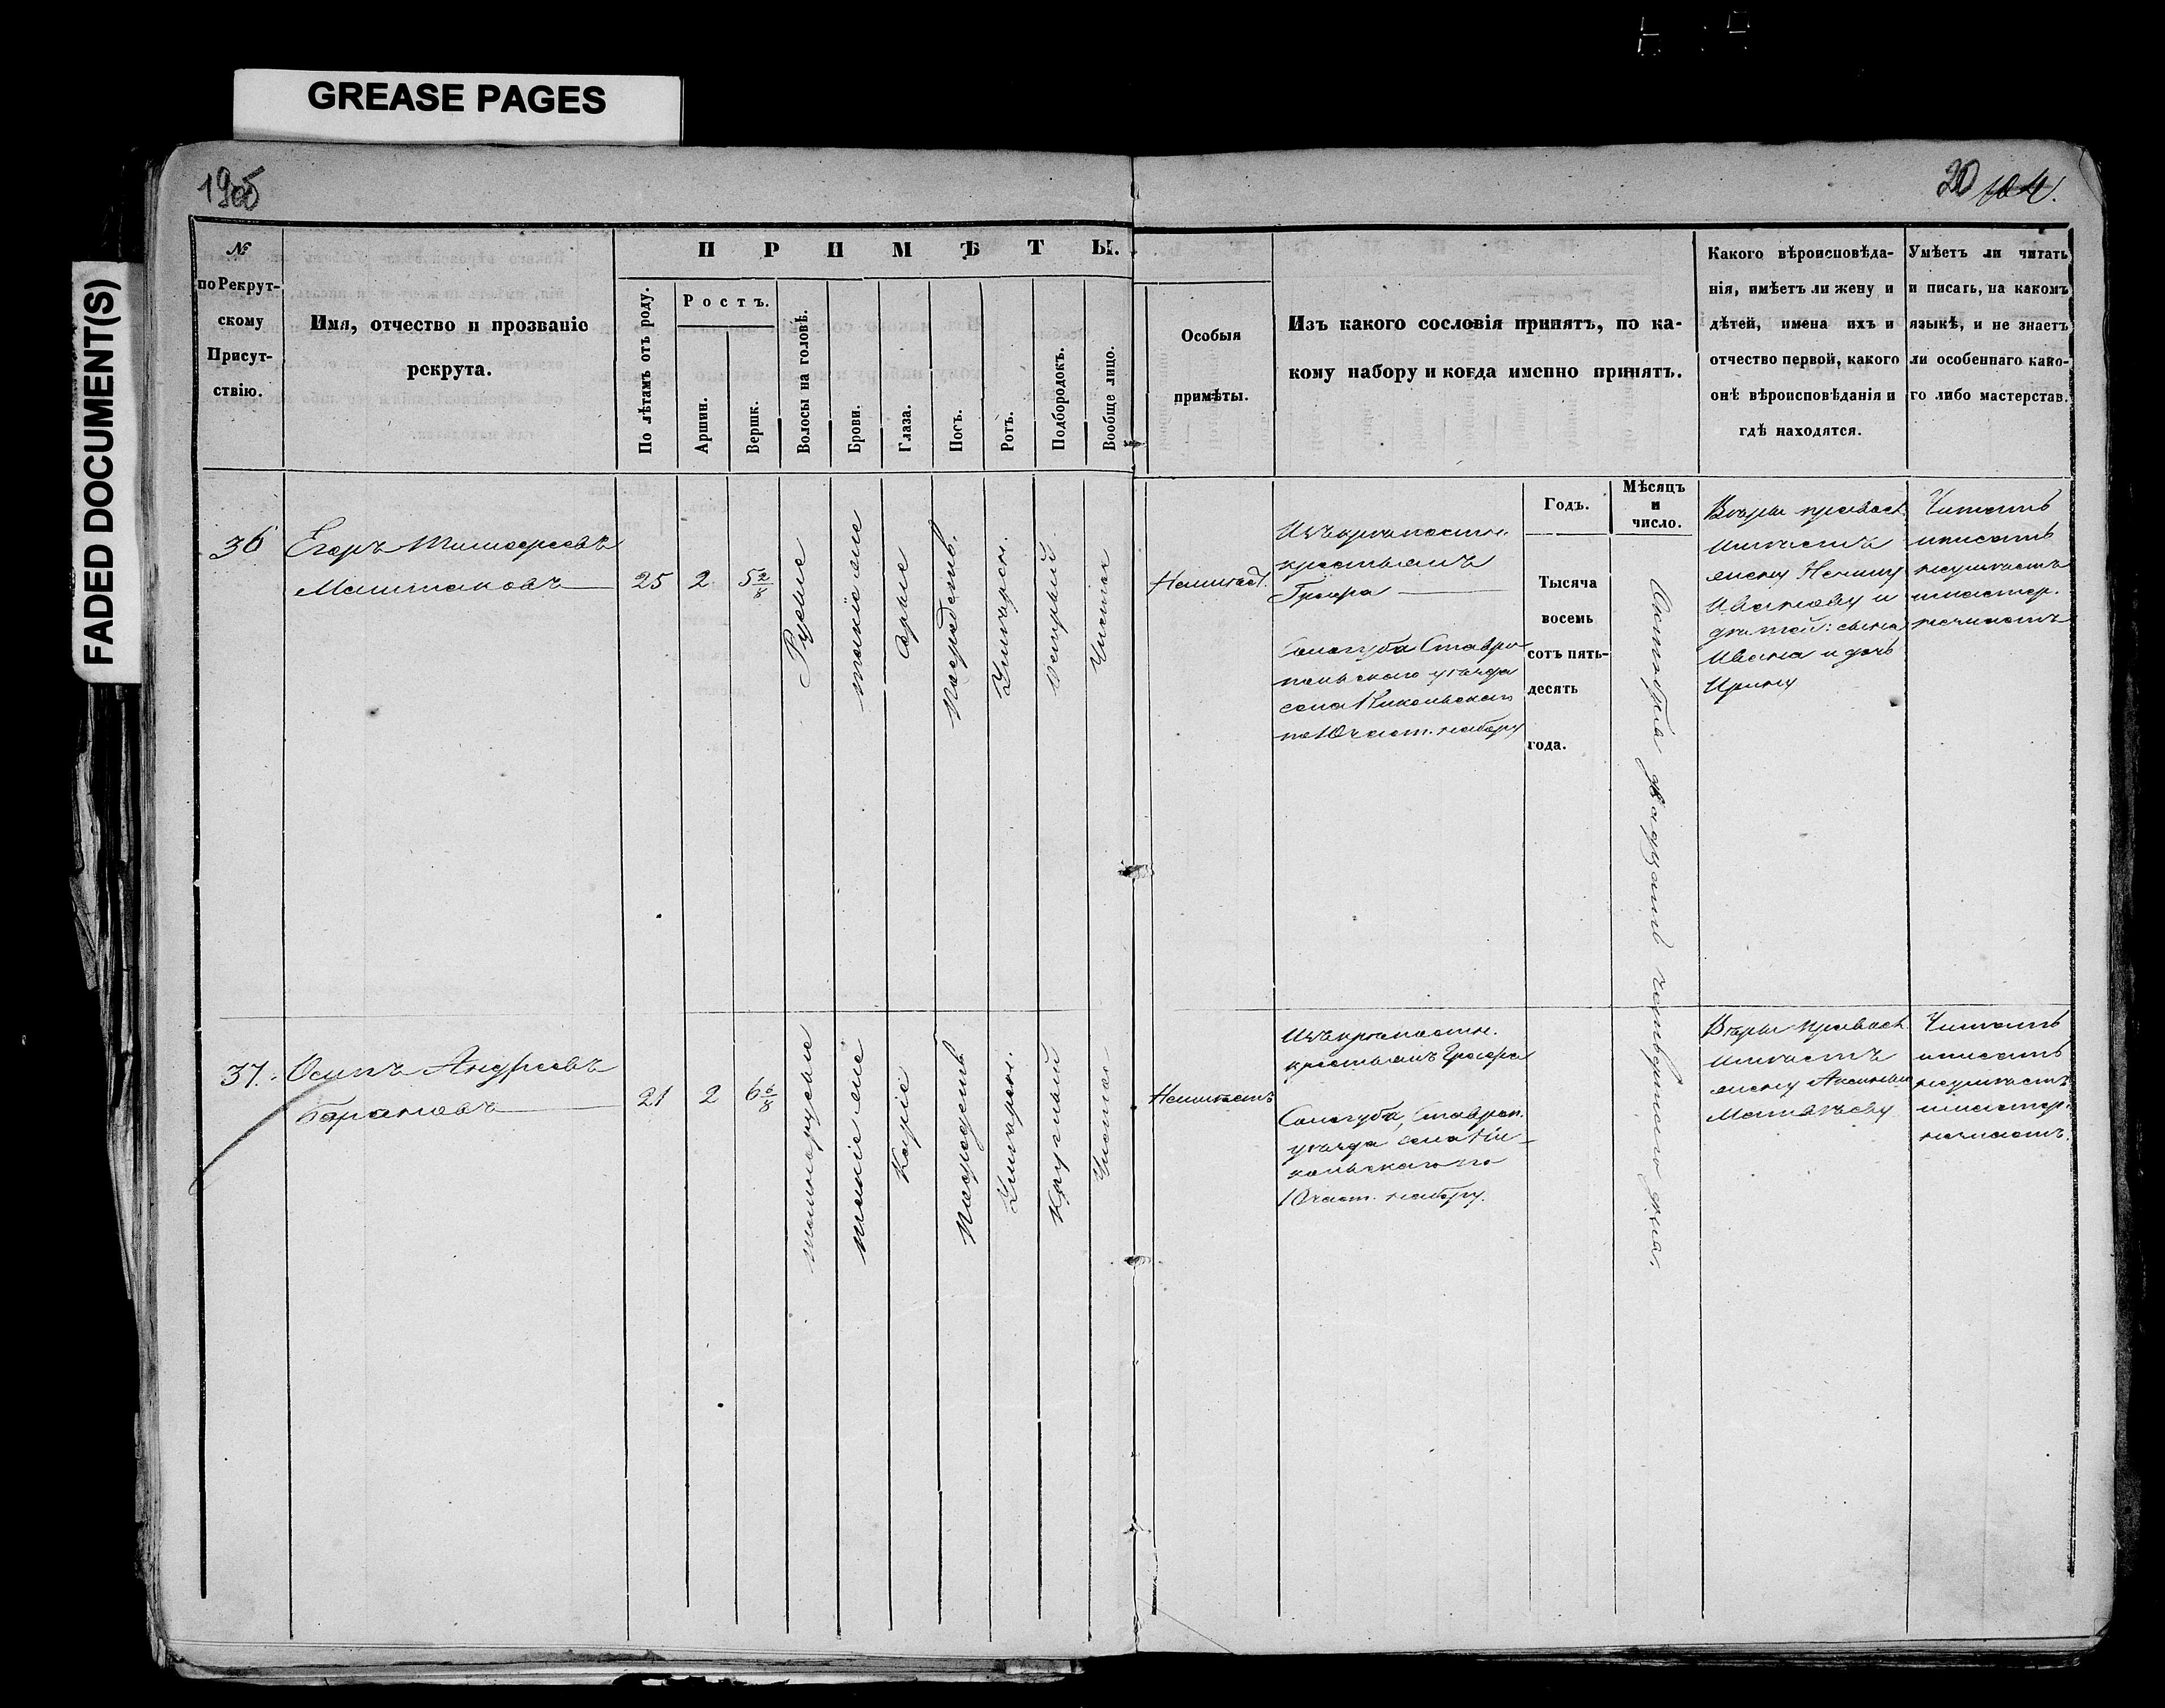 GREASE PAGES
FADED DOCUMENT(S)
20 104.
№
по Рекрут-
скому
Присут-
ствію.
Имя, отчество и прозваніе
рекрута.
ПРИМѢТЫ.
По лѣтамъ отъ роду.
Ростъ.
Аршин.
Вершк.
Волосы на головѣ.
Брови.
Глаза.
Носъ.
Ротъ.
Подбородокъ.
Вообще лицо.
Особыя
примѣты.
Изъ какого сословія принятъ, по ка-
кому набору и когда именно принятъ.
Какого вѣроисповѣда-
нія, имѣетъ ли жену и
дѣтей, имена ихъ и
отчество первой, какого
онѣ вѣроисповѣданія и
гдѣ находятся.
Умѣетъ ли читать
и писать, на какомъ
языкѣ, и не знаетъ
ли особеннаго како-
го либо мастерства.
36
Егоръ Тимофеевъ
Маштаковъ
25
2
5 2/8
Русые
тонкіе
Сѣрые
посредств.
Умѣрен.
острый
Чистое
Неимѣет.
Изъ крѣпостн.
крестьянъ
Графа
Сологуба Ставро-
польскаго уѣзда
села Никольскаго
по 10 част. набору
Годъ.
Тысяча
восемь
сотъ пять-
десять
года.
Мѣсяцъ
и
число.
Октября двадцать четвертаго дня.
Вѣры правосл.
имѣетъ
жену
Иванову и
дѣтей: сына
Ивана и дочь
Ирину
Читать
и писать
неумѣетъ
и мастер.
незнаетъ
37.
Осипъ Андреевъ
Барановъ
21
2
6 6/8
темнорусые
тонкіе
Каріе
посредств.
Умѣрен.
Круглый
Чистое
Неимѣетъ
Изъ крѣпостн.
крестьянъ Графа
Сологуба, Ставроп.
уѣзда села Ни-
кольскаго по
10 част. набору.
Вѣры правосл.
имѣетъ
жену
Матвѣеву
Читать
и писать
неумѣетъ
и мастер.
незнаетъ.